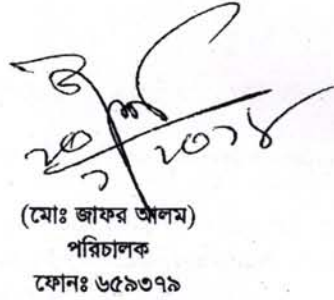 ২০
৭
২০১৪
(মোঃ জাফর আলম)
পরিচালক
ফোনঃ ৬৫৯৩৭৯